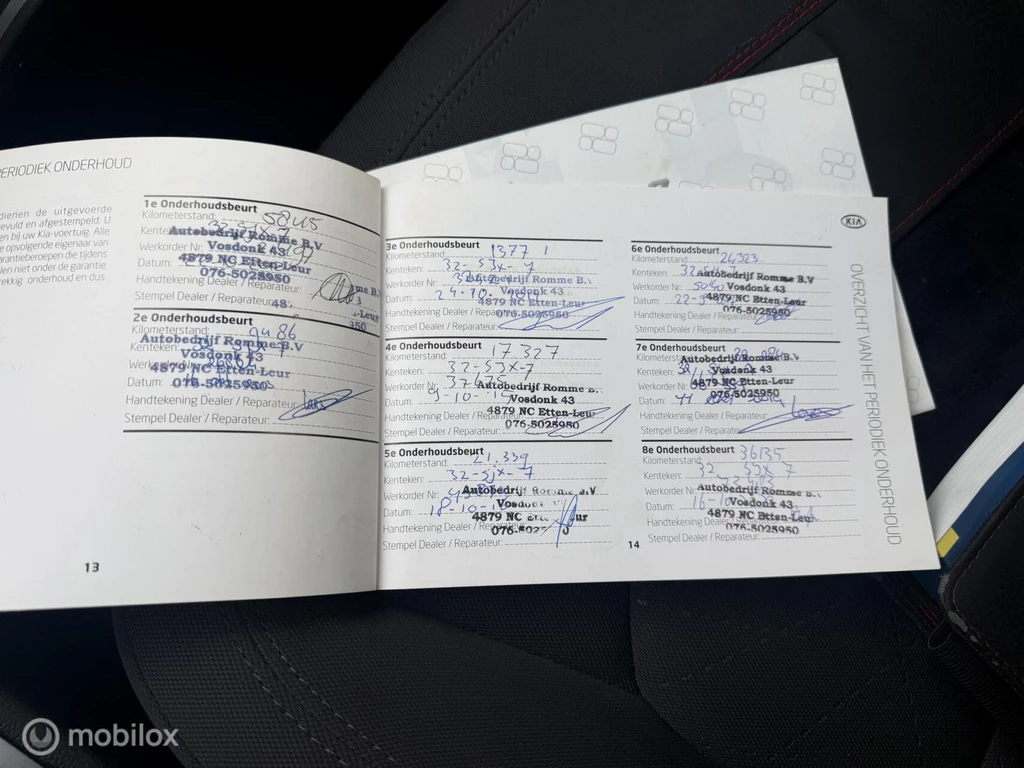 PERIODIEK ONDERHOUD
dienen de uitgevoerde
evuld en afgestempeld. U
en bij uw Kia-voertuig. Alle
e opvolgende eigenaar van
arantieberoepen die tijdens
len niet onder de garantie
rekkig onderhoud en dus
1e Onderhoudsbeurt
Kilometerstand: 5845
Autobedrijf Romme B.V
Werkorder Nr: Vosdonk 43
4879 NC Etten-Leur
Datum:
076-5025950
Handtekening Dealer / Reparateur:
Stempel Dealer / Reparateur:
2e Onderhoudsbeurt
Kilometerstand: 9486
Autobedrijf Romme B.V
Kenteken:
Vosdonk 43
4879 NC Etten-Leur
Datum: 076-5025950
Handtekening Dealer / Reparateur:
Stempel Dealer / Reparateur:
13
3e Onderhoudsbeurt
Kilometerstand: 13771
Kenteken: 32-SJX-7
Autobedrijf Romme B.V
Werkorder Nr:
Vosdonk 43
Datum: 24-10
4879 NC Etten-Leur
Handtekening Dealer / Reparateur: 076-5025950
Stempel Dealer / Reparateur:
4e Onderhoudsbeurt
Kilometerstand: 17327
Kenteken: 32-SJX-7
Werkorder Nr:
Autobedrijf Romme B.
Datum: 9-10-
Vosdonk 43
4879 NC Etten-Leur
Handtekening Dealer / Reparateur:
076-5025950
Stempel Dealer / Reparateur:
5e Onderhoudsbeurt
Kilometerstand: 21.339
Kenteken: 32-SJX-7
Werkorder Nr:
Autobedrijf Romme B.V
Vosdonk
Datum: 18-10-
4879 NC
Handtekening Dealer / Reparateur:
Stempel Dealer / Reparateur:
14
KIA
OVERZICHT VAN HET PERIODIEK ONDERHOUD
6e Onderhoudsbeurt
Kilometerstand: 24,323
Kenteken: 32
Autobedrijf Romme B.V
Werkorder Nr:
Vosdonk 43
Datum: 22-
4879 NC Etten-Leur
Handtekening Dealer / Reparateur:
076-5025950
Stempel Dealer / Reparateur:
7e Onderhoudsbeurt
Kilometerstand:
Autobedrijf Romme B.V
Kenteken:
Vosdonk 43
Werkorder Nr:
4879 NC Etten-Leur
Datum: 11
076-5025950
Handtekening Dealer / Reparateur:
Stempel Dealer / Reparateur:
8e Onderhoudsbeurt
Kilometerstand: 36135
Kenteken: 32 SJX 7
Werkorder Nr:
Autobedrijf Romme B.
Vosdonk 43
Datum: 16-10
4879 NC Etten-Leur
Handtekening Dealer / Reparateur:
076-5025950
Stempel Dealer / Reparateur:
mobilox